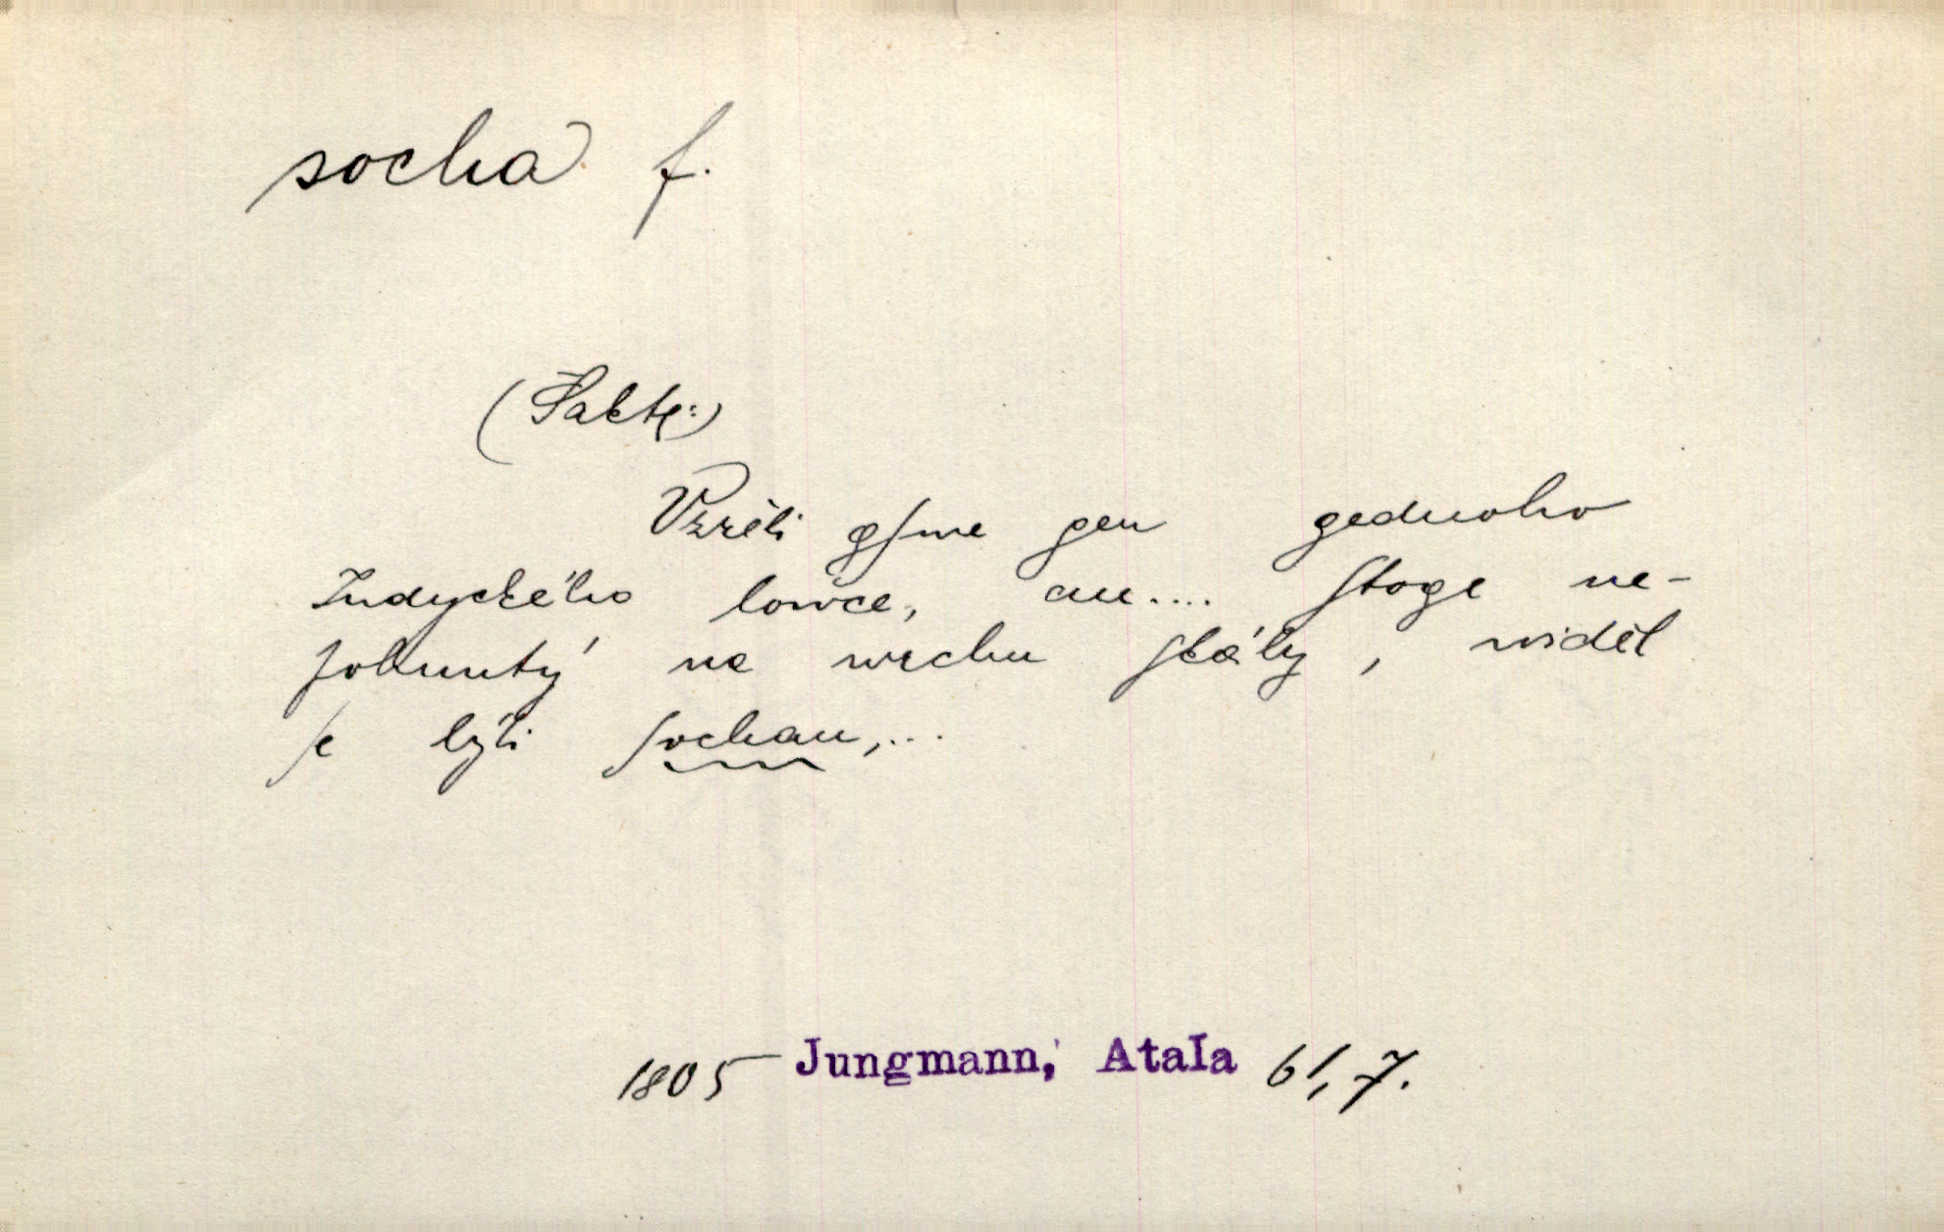 socha f.
(Šakt:)
Vzřěli gſme gen gednoho
Indyckého lowce, an.... ſtoge ne-
ſohnutý na wrchu ſkály, widěl
ſe býti ſochau,...
1805 Jungmann, Atala 61, 7.